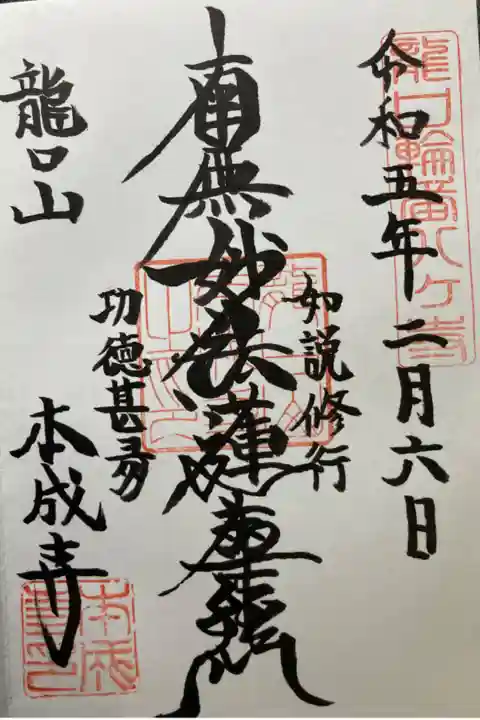 龍口輪番八ヶ寺
令和五年二月六日
如説修行
南無妙法蓮華経
功徳甚多
龍口山
本成寺